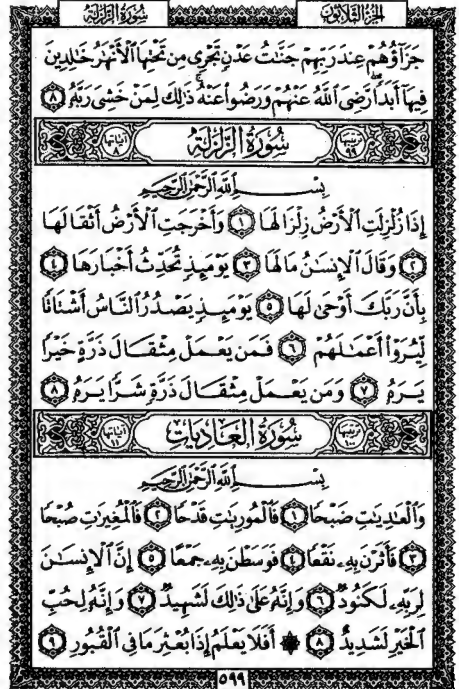 الجزء الثلاثون
سورة الزلزلة
جَزَآؤُهُمْ عِندَ رَبِّهِمْ جَنَّٰتُ عَدْنٍ تَجْرِى مِن تَحْتِهَا ٱلْأَنْهَٰرُ خَٰلِدِينَ
فِيهَآ أَبَدًا ۖ رَّضِىَ ٱللَّهُ عَنْهُمْ وَرَضُوا۟ عَنْهُ ۚ ذَٰلِكَ لِمَنْ خَشِىَ رَبَّهُۥ ٨
ترتيبها ٩٩ سُورَةُ الزَّلْزَلَةِ آياتها ٨
بِسْمِ ٱللَّهِ ٱلرَّحْمَٰنِ ٱلرَّحِيمِ
إِذَا زُلْزِلَتِ ٱلْأَرْضُ زِلْزَالَهَا ١ وَأَخْرَجَتِ ٱلْأَرْضُ أَثْقَالَهَا
٢ وَقَالَ ٱلْإِنسَٰنُ مَا لَهَا ٣ يَوْمَئِذٍ تُحَدِّثُ أَخْبَارَهَا ٤
بِأَنَّ رَبَّكَ أَوْحَىٰ لَهَا ٥ يَوْمَئِذٍ يَصْدُرُ ٱلنَّاسُ أَشْتَاتًا
لِّيُرَوْا۟ أَعْمَٰلَهُمْ ٦ فَمَن يَعْمَلْ مِثْقَالَ ذَرَّةٍ خَيْرًا
يَرَهُۥ ٧ وَمَن يَعْمَلْ مِثْقَالَ ذَرَّةٍ شَرًّا يَرَهُۥ ٨
ترتيبها ١٠٠ سُورَةُ العَادِيَاتِ آياتها ١١
بِسْمِ ٱللَّهِ ٱلرَّحْمَٰنِ ٱلرَّحِيمِ
وَٱلْعَٰدِيَٰتِ ضَبْحًا ١ فَٱلْمُورِيَٰتِ قَدْحًا ٢ فَٱلْمُغِيرَٰتِ صُبْحًا
٣ فَأَثَرْنَ بِهِۦ نَقْعًا ٤ فَوَسَطْنَ بِهِۦ جَمْعًا ٥ إِنَّ ٱلْإِنسَٰنَ
لِرَبِّهِۦ لَكَنُودٌ ٦ وَإِنَّهُۥ عَلَىٰ ذَٰلِكَ لَشَهِيدٌ ٧ وَإِنَّهُۥ لِحُبِّ
ٱلْخَيْرِ لَشَدِيدٌ ٨ ۞ أَفَلَا يَعْلَمُ إِذَا بُعْثِرَ مَا فِى ٱلْقُبُورِ ٩
٥٩٩